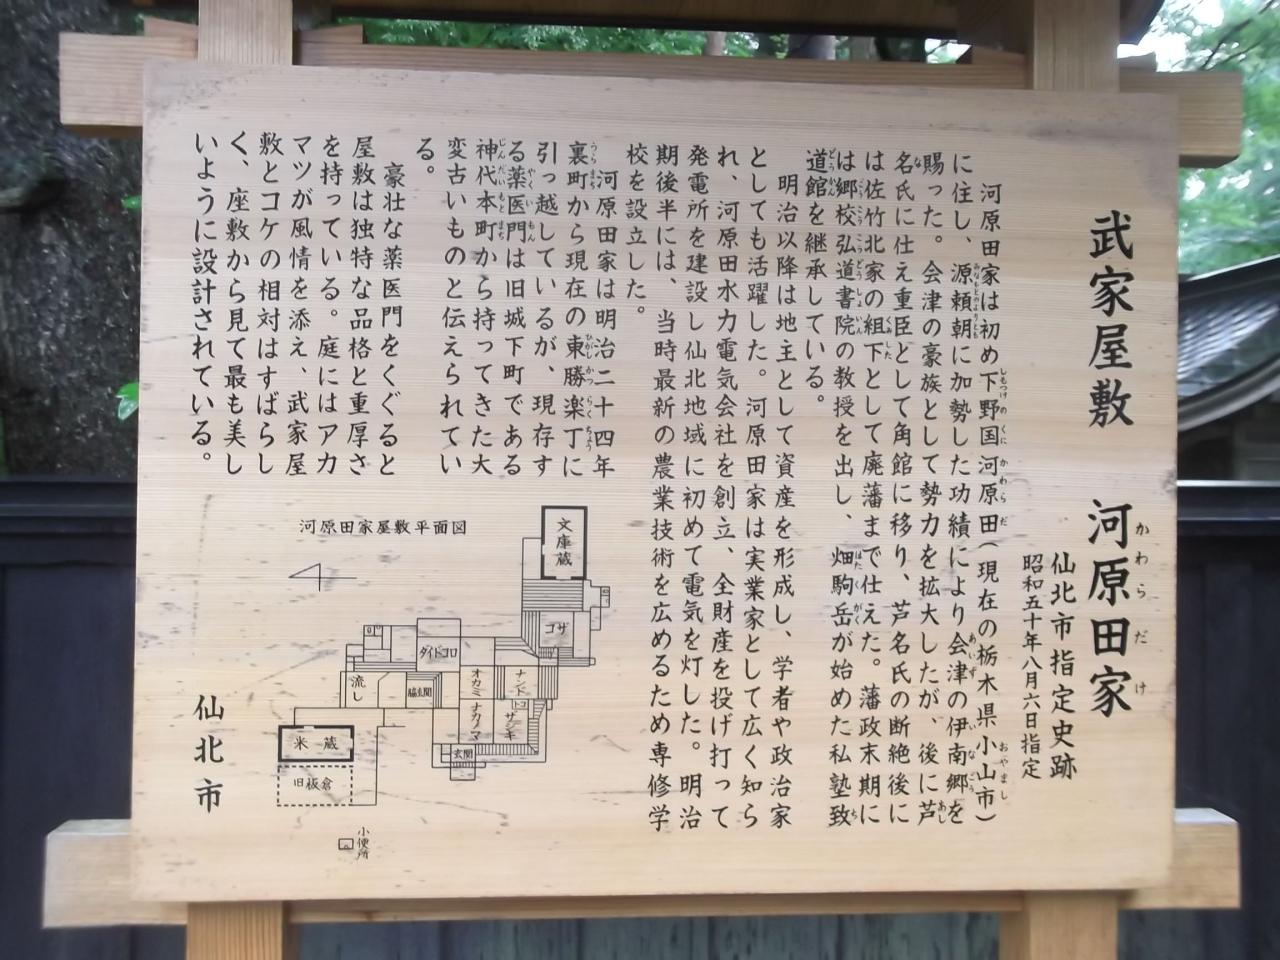 武家屋敷 河原田家
かわらだけ
仙北市指定史跡
昭和五十年八月六日指定
河原田家は初め下野国河原田(現在の栃木県小山市)
に住し、源頼朝に加勢した功績により会津の伊南郷を
賜った。会津の豪族として勢力を拡大したが、後に芦
名氏に仕え重臣として角館に移り、芦名氏の断絶後に
は佐竹北家の組下として廃藩まで仕えた。藩政末期に
は郷校弘道書院の教授を出し、畑駒岳が始めた私塾致
道館を継承している。
明治以降は地主として資産を形成し、学者や政治家
としても活躍した。河原田家は実業家として広く知ら
れ、河原田水力電気会社を創立、全財産を投げ打って
発電所を建設し仙北地域に初めて電気を灯した。明治
期後半には、当時最新の農業技術を広めるため専修学
校を設立した。
河原田家は明治二十四年
裏町から現在の東勝楽丁に
引っ越しているが、現存す
る薬医門は旧城下町である
神代本町から持ってきた大
変古いものと伝えられてい
る。
豪壮な薬医門をくぐると
屋敷は独特な品格と重厚さ
を持っている。庭にはアカ
マツが風情を添え、武家屋
敷とコケの相対はすばらし
く、座敷から見て最も美し
いように設計されている。
河原田家屋敷平面図
文庫蔵
コザ
ダイドコロ
オカミ
ナンド
流し
脇玄関
ナカノマ
トコ
ザシキ
玄関
米蔵
旧板倉
小便所
仙北市